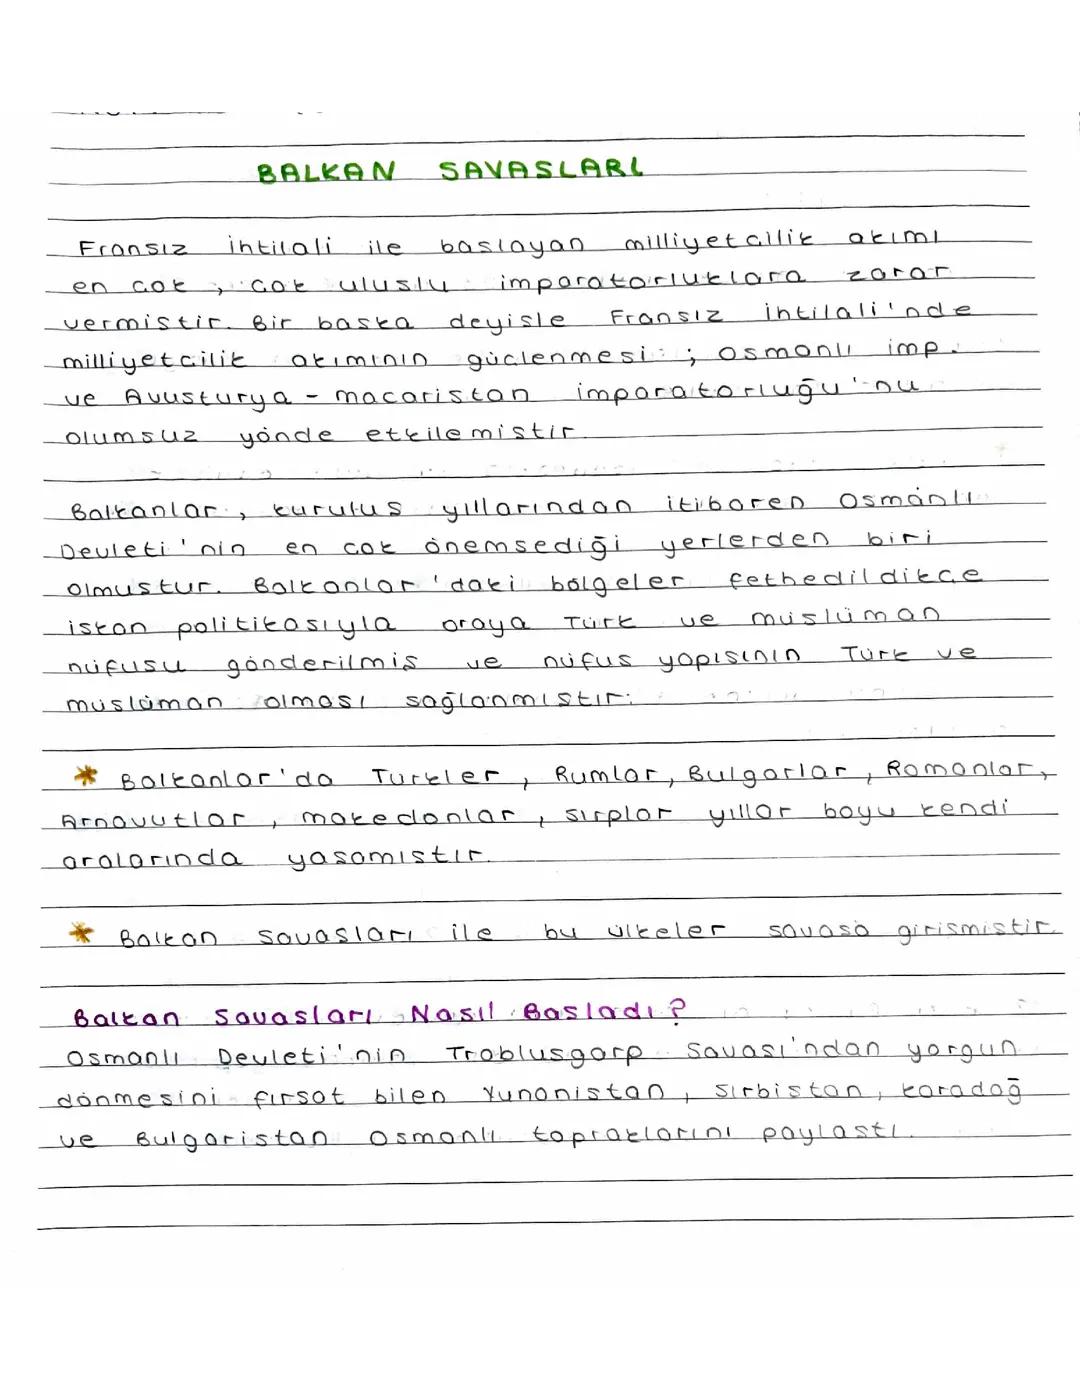 BALKAN SAVASLARI
Fransız ihtilali ile baslayan milliyetcilik akımı
en cok , cok uluslu imparatorluklara zarar
vermistir. Bir baska deyisle Fransız ihtilali'nde
milliyetcilik akımının güclenmesi ; Osmanlı imp.
ve Avusturya - macaristan imparatorluğu'nu
olumsuz yönde etkilemistir.
Balkanlar , kurulus yıllarından itibaren Osmanlı
Devleti'nin en cok önemsediği yerlerden biri
olmustur. Balkanlar'daki bölgeler fethedildikce
iskan politikasıyla oraya Türk ve müslüman
nüfusu gönderilmis ve nüfus yapısının Türk ve
müslüman olması sağlanmıstır.
* Balkanlar'da Türkler , Rumlar, Bulgarlar , Romanlar,
Arnavutlar , makedonlar , sırplar yıllar boyu kendi
aralarında yasamıstır.
* Balkan savasları ile bu ülkeler savasa girismistir.
Balkan Savasları Nasıl Basladı?
Osmanlı Devleti'nin Trablusgarp Savası'ndan yorgun
dönmesini fırsat bilen Yunanistan , Sırbistan , karadağ
ve Bulgaristan Osmanlı topraklarını paylastı.